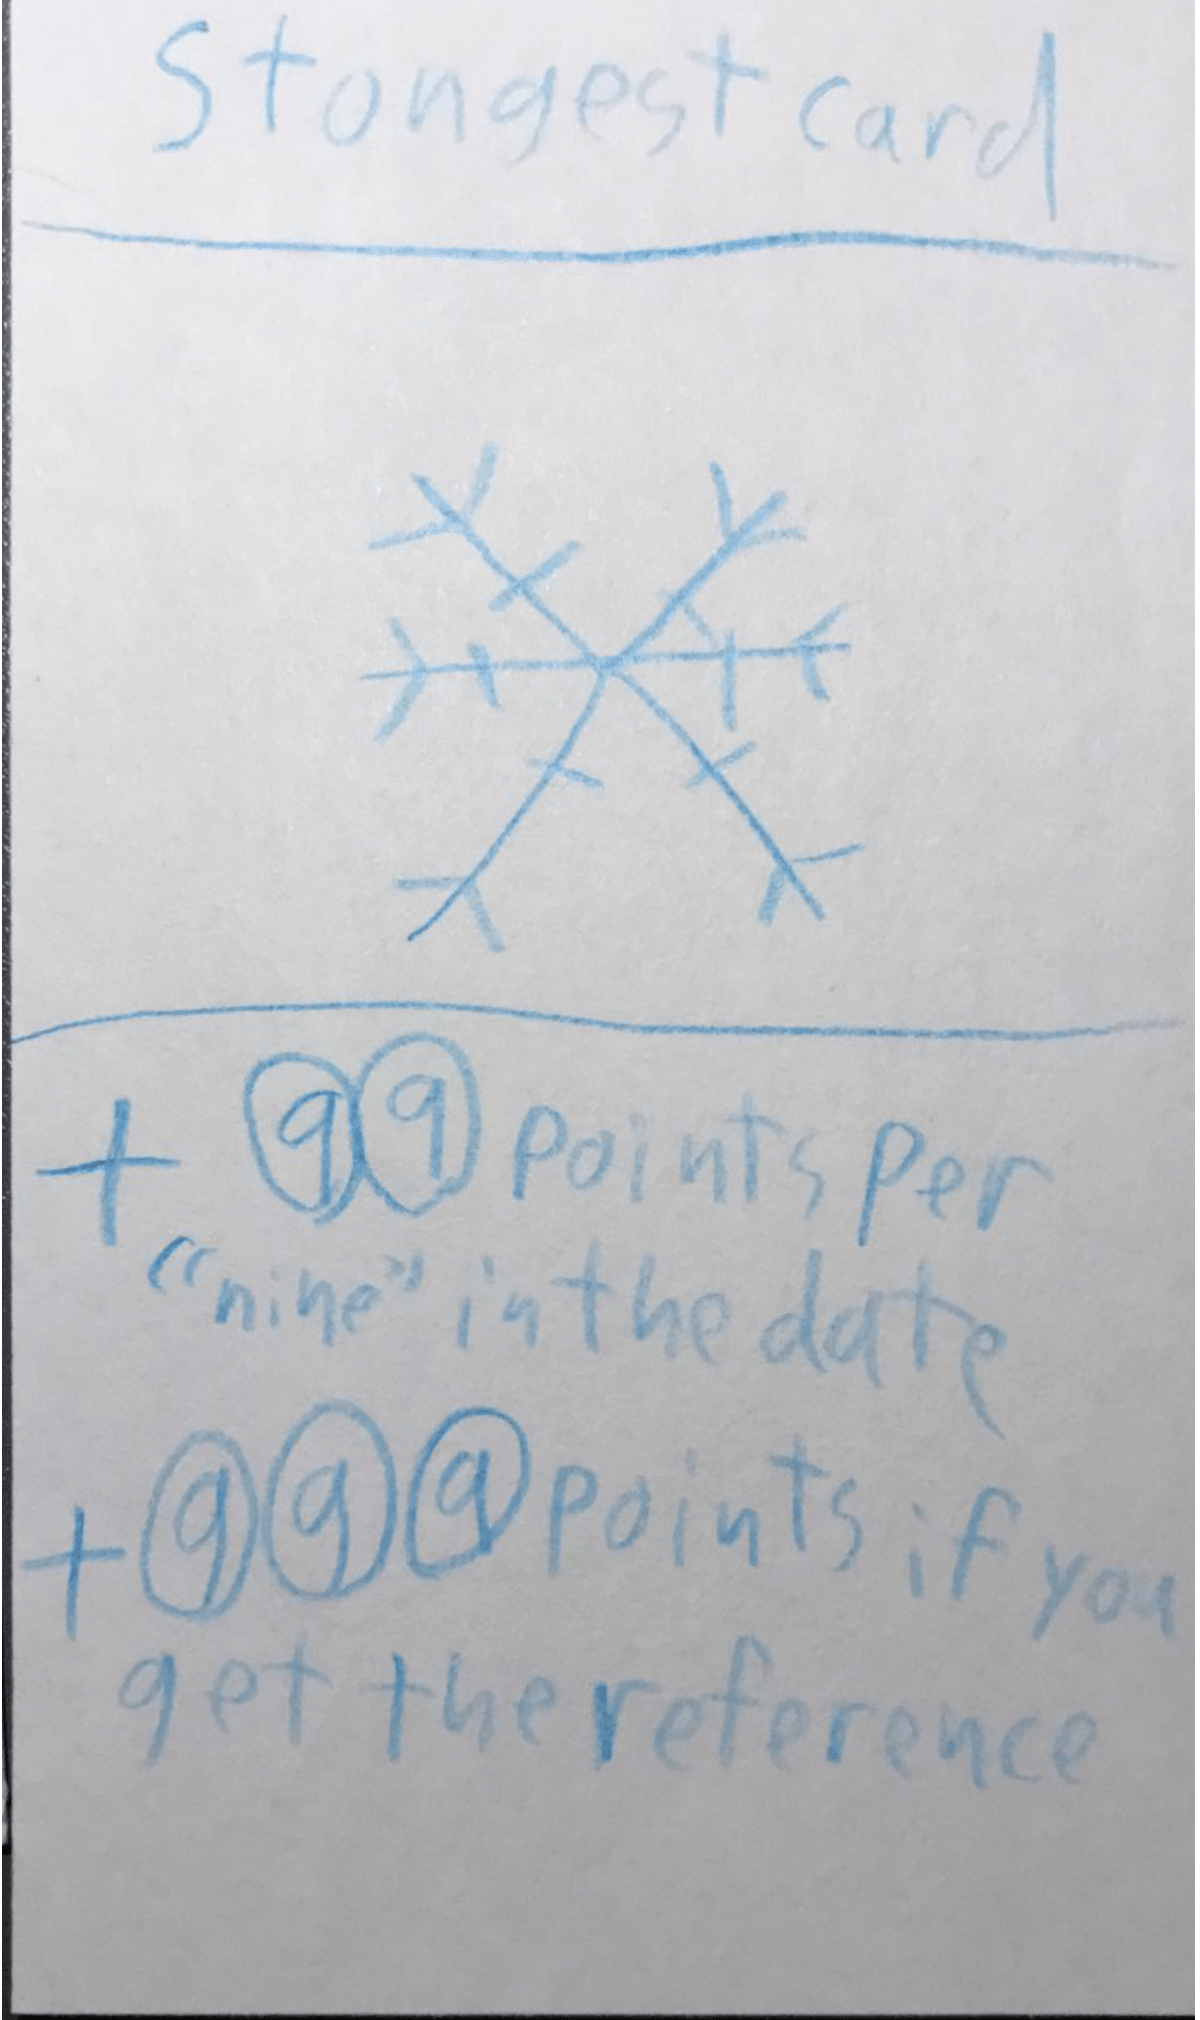 Stongest card
+ 99 points per
"nine" in the date
+ 999 points if you
get the reference